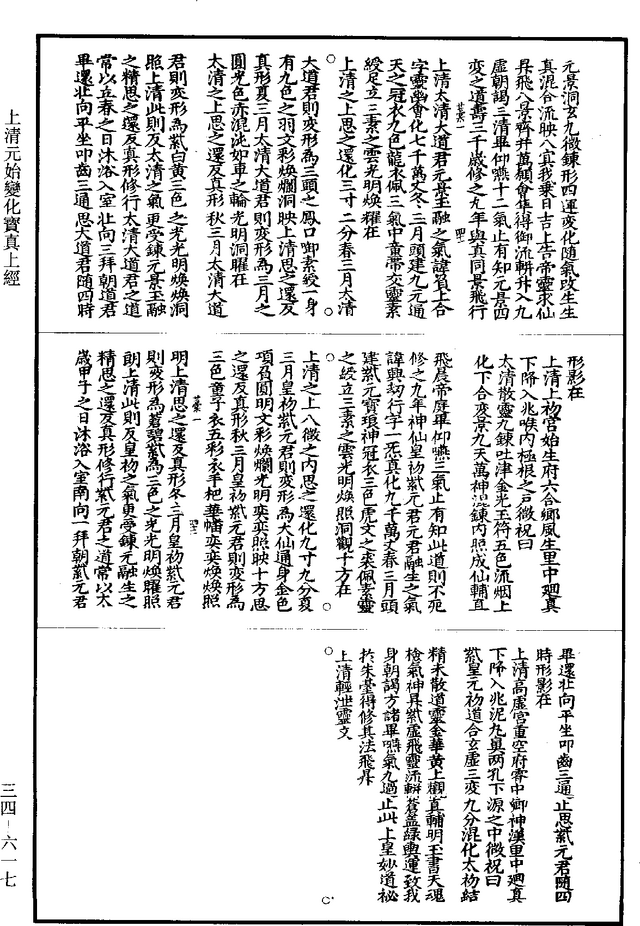 元景洞玄九微鍊形四運變化隨氣改生生
真混合流映八真我乘日吉上告帝靈求仙
昇飛八景齊并萬願會集得御流軿升入九
虛朝謁三清畢仰嚥十二氣止有知元景四
變之道壽三千歲修之九年與真同景飛行
上清太清大道君元景玉融之氣諱質上合
字靈幽會化七千萬丈冬三月頭建九元通
天之冠衣九色龍衣佩三氣中章帶交靈素
綬足立三素之雲光明煥耀在
上清之上思之還化三寸二分春三月太清
大道君則變形為三頭之鳳口啣素綬一身
有九色之羽文彩煥爛洞映上清思之還反
真形夏三月太清大道君則變形為三月之
圓光色赤混沌如車之輪光明洞曜在
太清之上思之還反真形秋三月太清大道
君則變形為紫白黃三色之光光明煥煥洞
照上清此則反太清之氣更受鍊元景玉融
之精思之還反真形修行太清大道君之道
常以立春之日沐浴入室北向三拜朝道君
畢還北向平坐叩齒三通思大道君隨四時
形影在
上清上初宮始生府六合鄉風生里中廻真
下降入兆喉內極根之戶微祝曰
太清散靈九鍊吐津金光玉符五色流烟上
化下合變景九天萬神混鍊內照成仙輔直
飛晨帝庭畢仰嚥三氣止有知此道則不死
修之九年神仙皇初紫元君元君融生之氣
諱興初行字一炁真化九千萬丈春三月頭
建紫元寶琅神冠衣三色虎文之裘佩素靈
之綬立三素之雲光明煥照洞觀十方在
上清之上八微之內思之還化九寸九分夏
三月皇初紫元君則變形為大仙通身金色
項負圓明文彩煥爛光明奕奕照映十方思
之還反真形秋三月皇初紫元君則變形為
三色童子衣五彩衣手把華幡奕奕煥煥照
明上清思之還反真形冬三月皇初紫元君
則變形為蒼碧紫為三色之光光明煥耀照
朗上清此則反皇初之氣更受鍊元融生之
精思之還反真形修行紫元君之道常以太
歲甲子之日沐浴入室南向一拜朝紫元君
畢還北向平坐叩齒三通止思紫元君隨四
時形影在
上清高虛宮重空府霄中鄉神漢里中廻真
下降入兆泥丸與兩孔下源之中微祝曰
紫皇元初道合玄虛三變九分混化太初結
精未散道靈金華黃上觀真輔明玉書天魂
檢氣神昇紫虛飛靈流軿蒼蓋綠輿運致我
身朝謁方諸畢嚥氣九過止此上皇妙道祕
於朱臺得修其法飛昇
上清輕泄靈文
上清元始變化寶真上經
三四-六一七